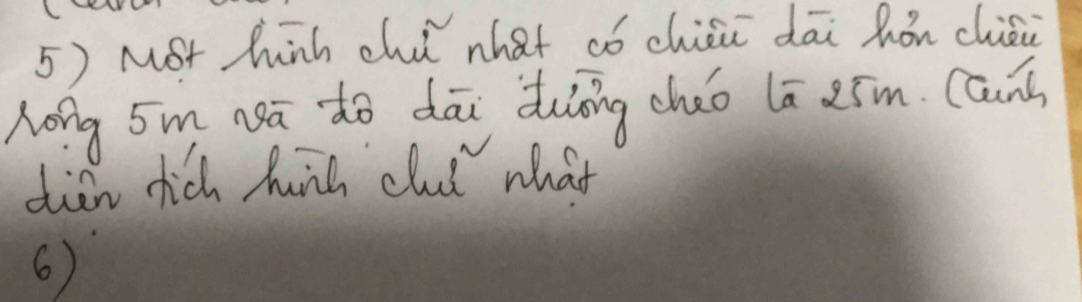 5) Một hình chữ nhật có chiều dài hơn chiều
rộng 5m và độ dài đường chéo là 25m. (Tính
diện tích hình chữ nhật
6)